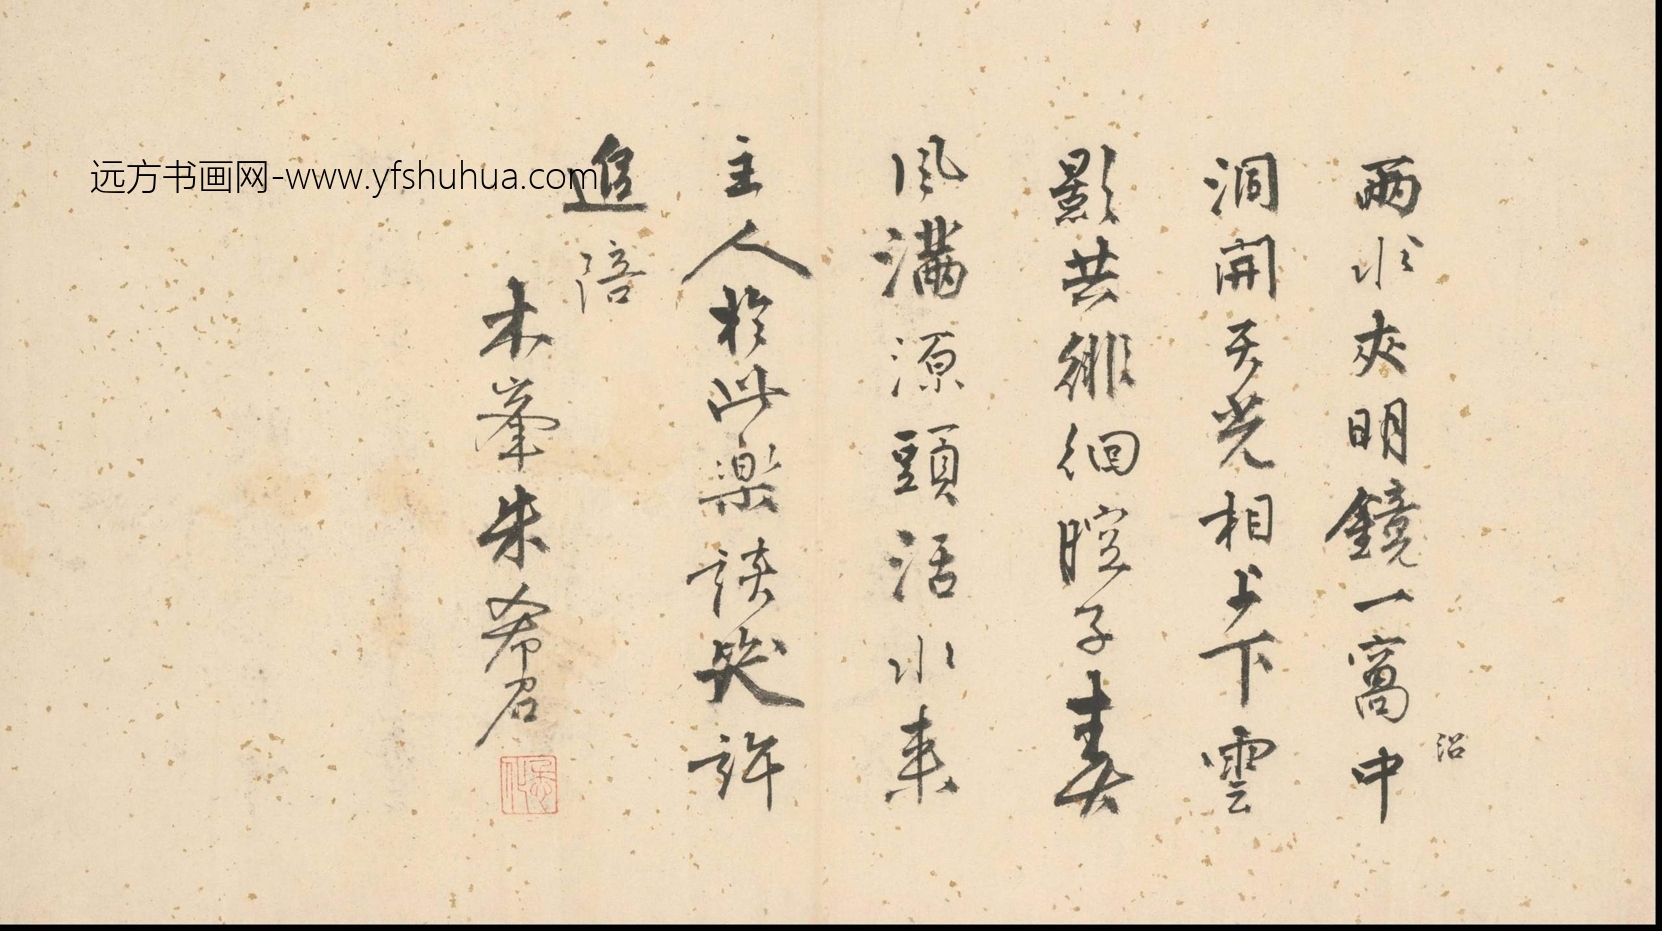 远方书画网-www.yfshuhua.com
兩水夾明鏡一窩中
沼
洞開天光相上下雲
影共徘徊腔子春
風滿源頭活水來
主人於此樂談笑許
追陪
木峯朱希召